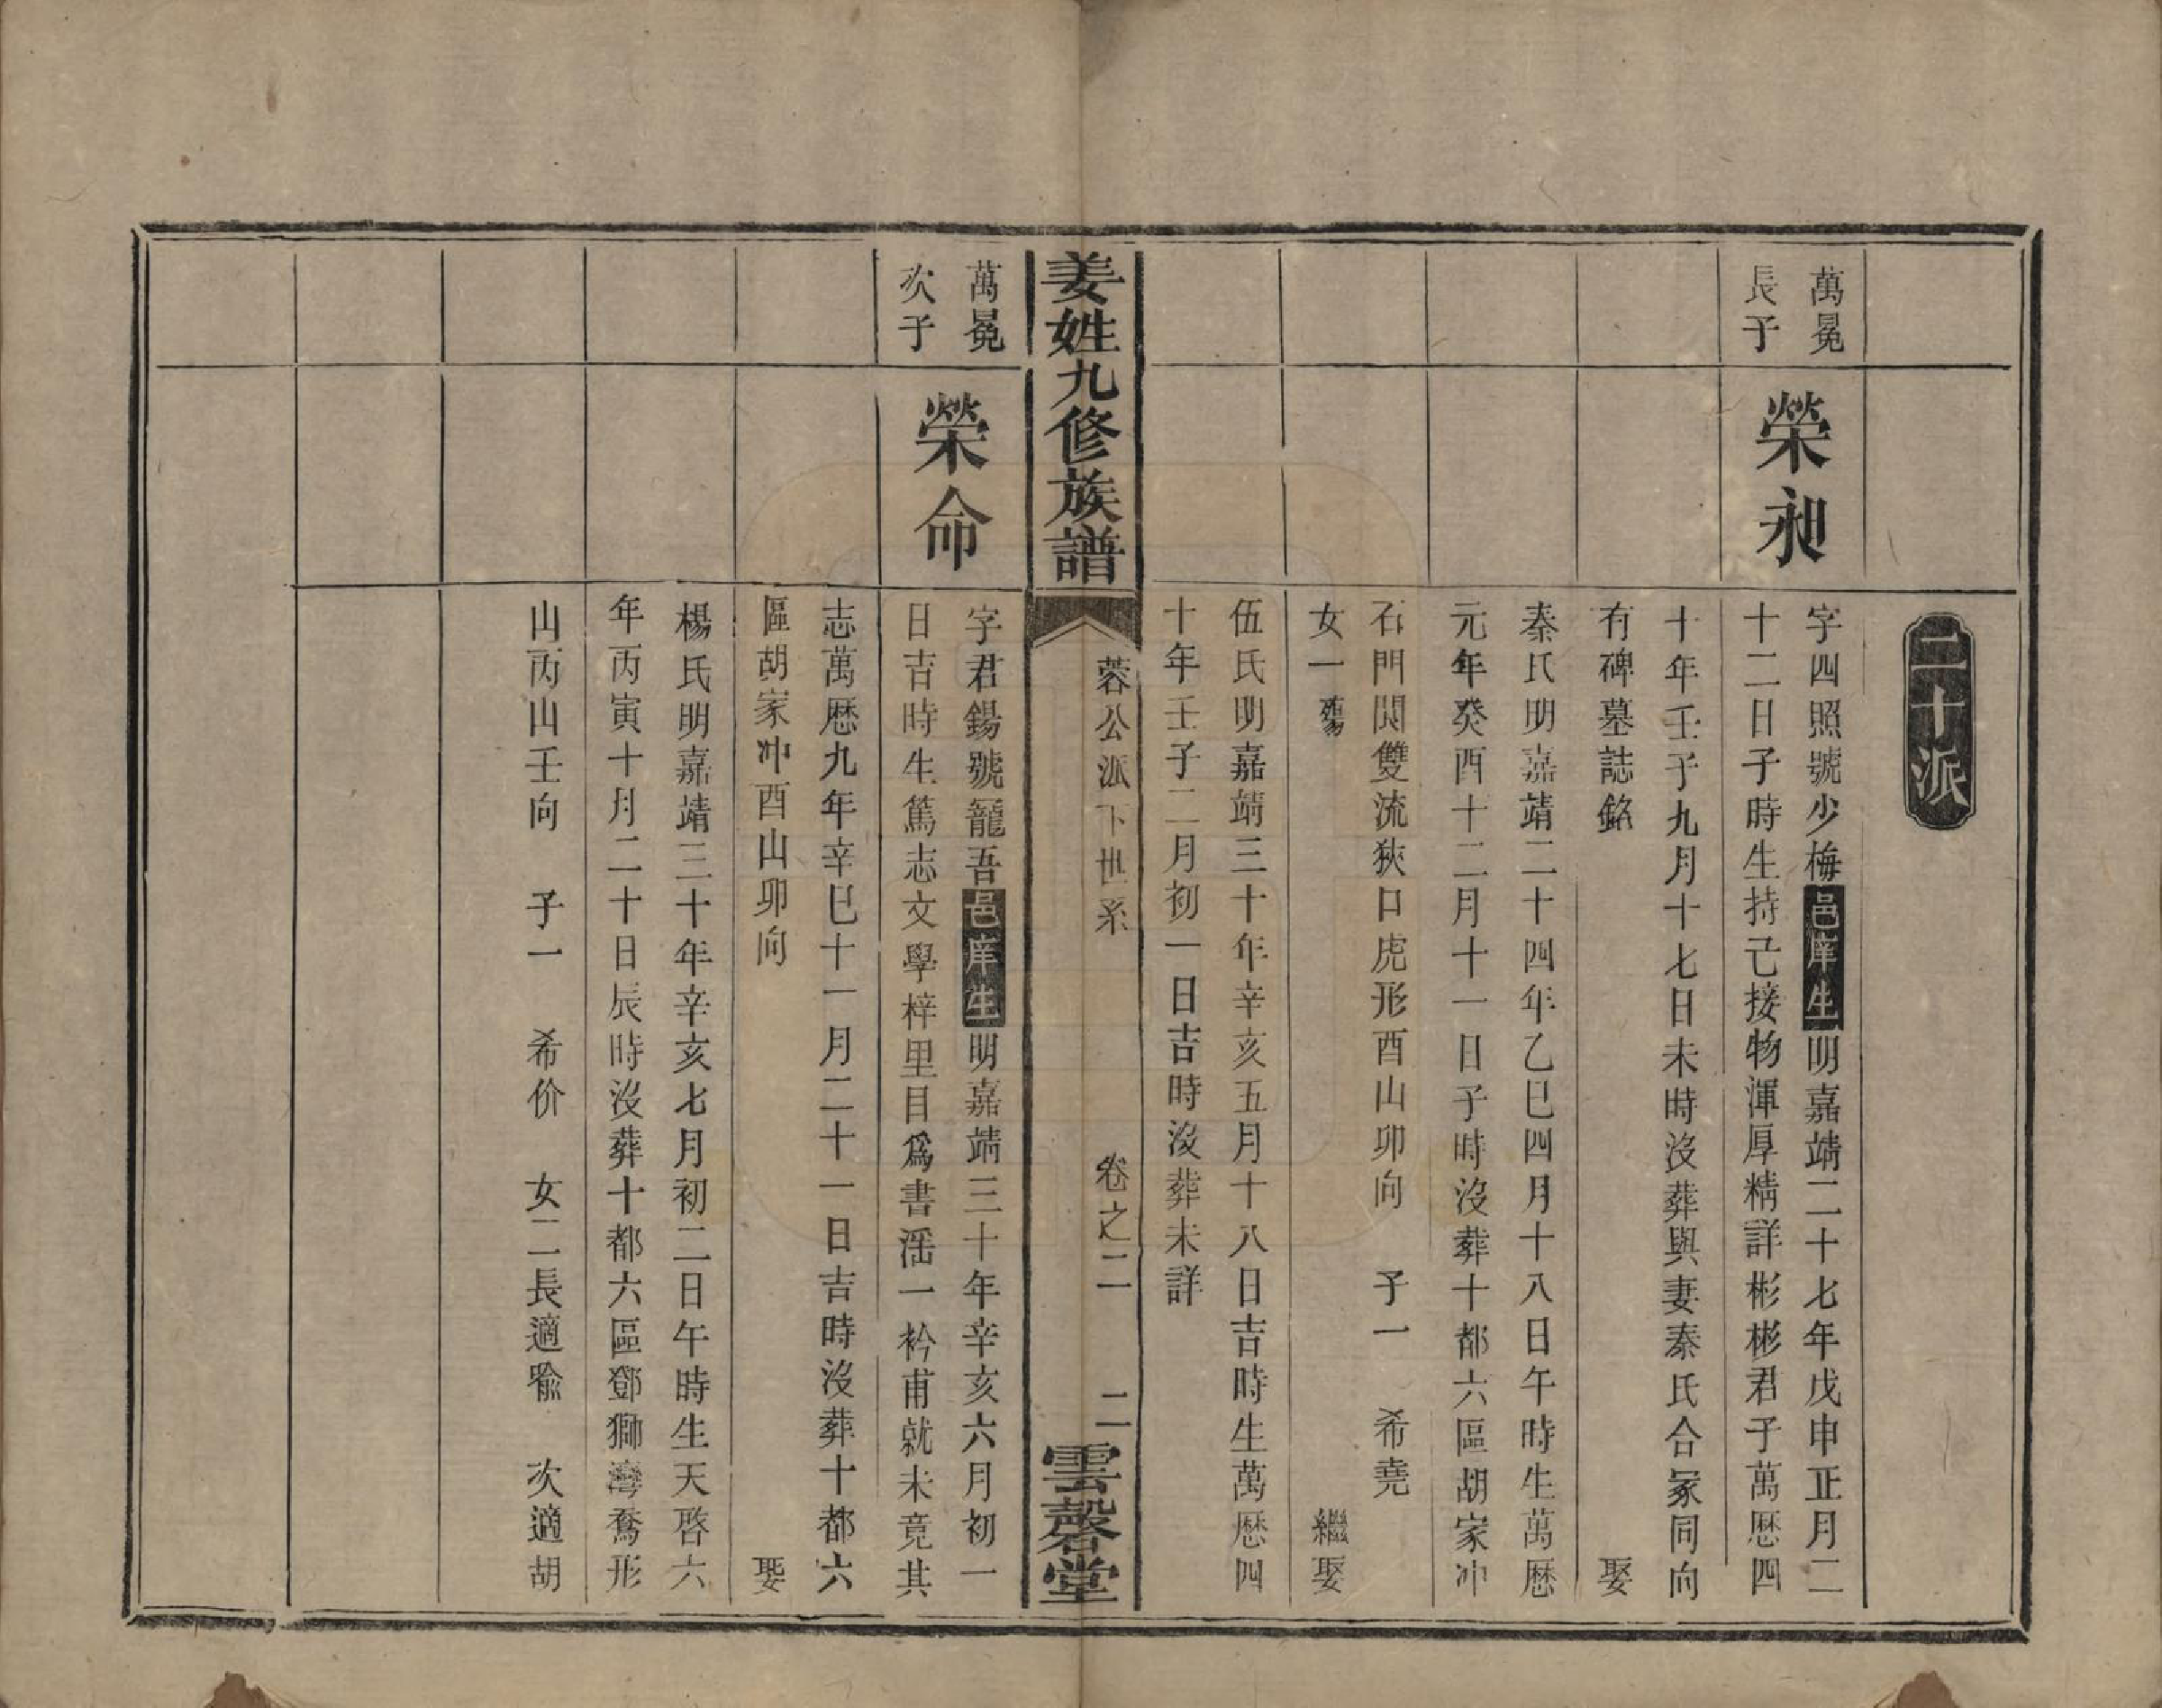 二十派
萬冕
長子
榮昶
字四照號少梅邑庠生明嘉靖二十七年戊申正月二
十二日子時生持己接物渾厚精詳彬彬君子萬厯四
十年壬子九月十七日未時沒葬與妻秦氏合冢同向
有碑墓誌銘 娶
秦氏明嘉靖二十四年乙巳四月十八日午時生萬厯
元年癸酉十二月十一日子時沒葬十都六區胡家冲
石門閱雙流狹口虎形酉山卯向 子一 希堯
女一 殤 繼娶
伍氏明嘉靖三十年辛亥五月十八日吉時生萬厯四
十年壬子二月初一日吉時沒葬未詳
姜姓九修族譜
蓉公派下世系 卷之二 二
雲磬堂
萬冕
次子
榮命
字君錫號龍吾邑庠生明嘉靖三十年辛亥六月初一
日吉時生篤志文學梓里目爲書滛一衿甫就未竟其
志萬厯九年辛巳十一月二十一日吉時沒葬十都六
區胡家冲酉山卯向 娶
楊氏明嘉靖三十年辛亥七月初二日午時生天啓六
年丙寅十月二十日辰時沒葬十都六區鄧獅灣喬形
山丙山壬向 子一 希价 女二長適喻 次適胡